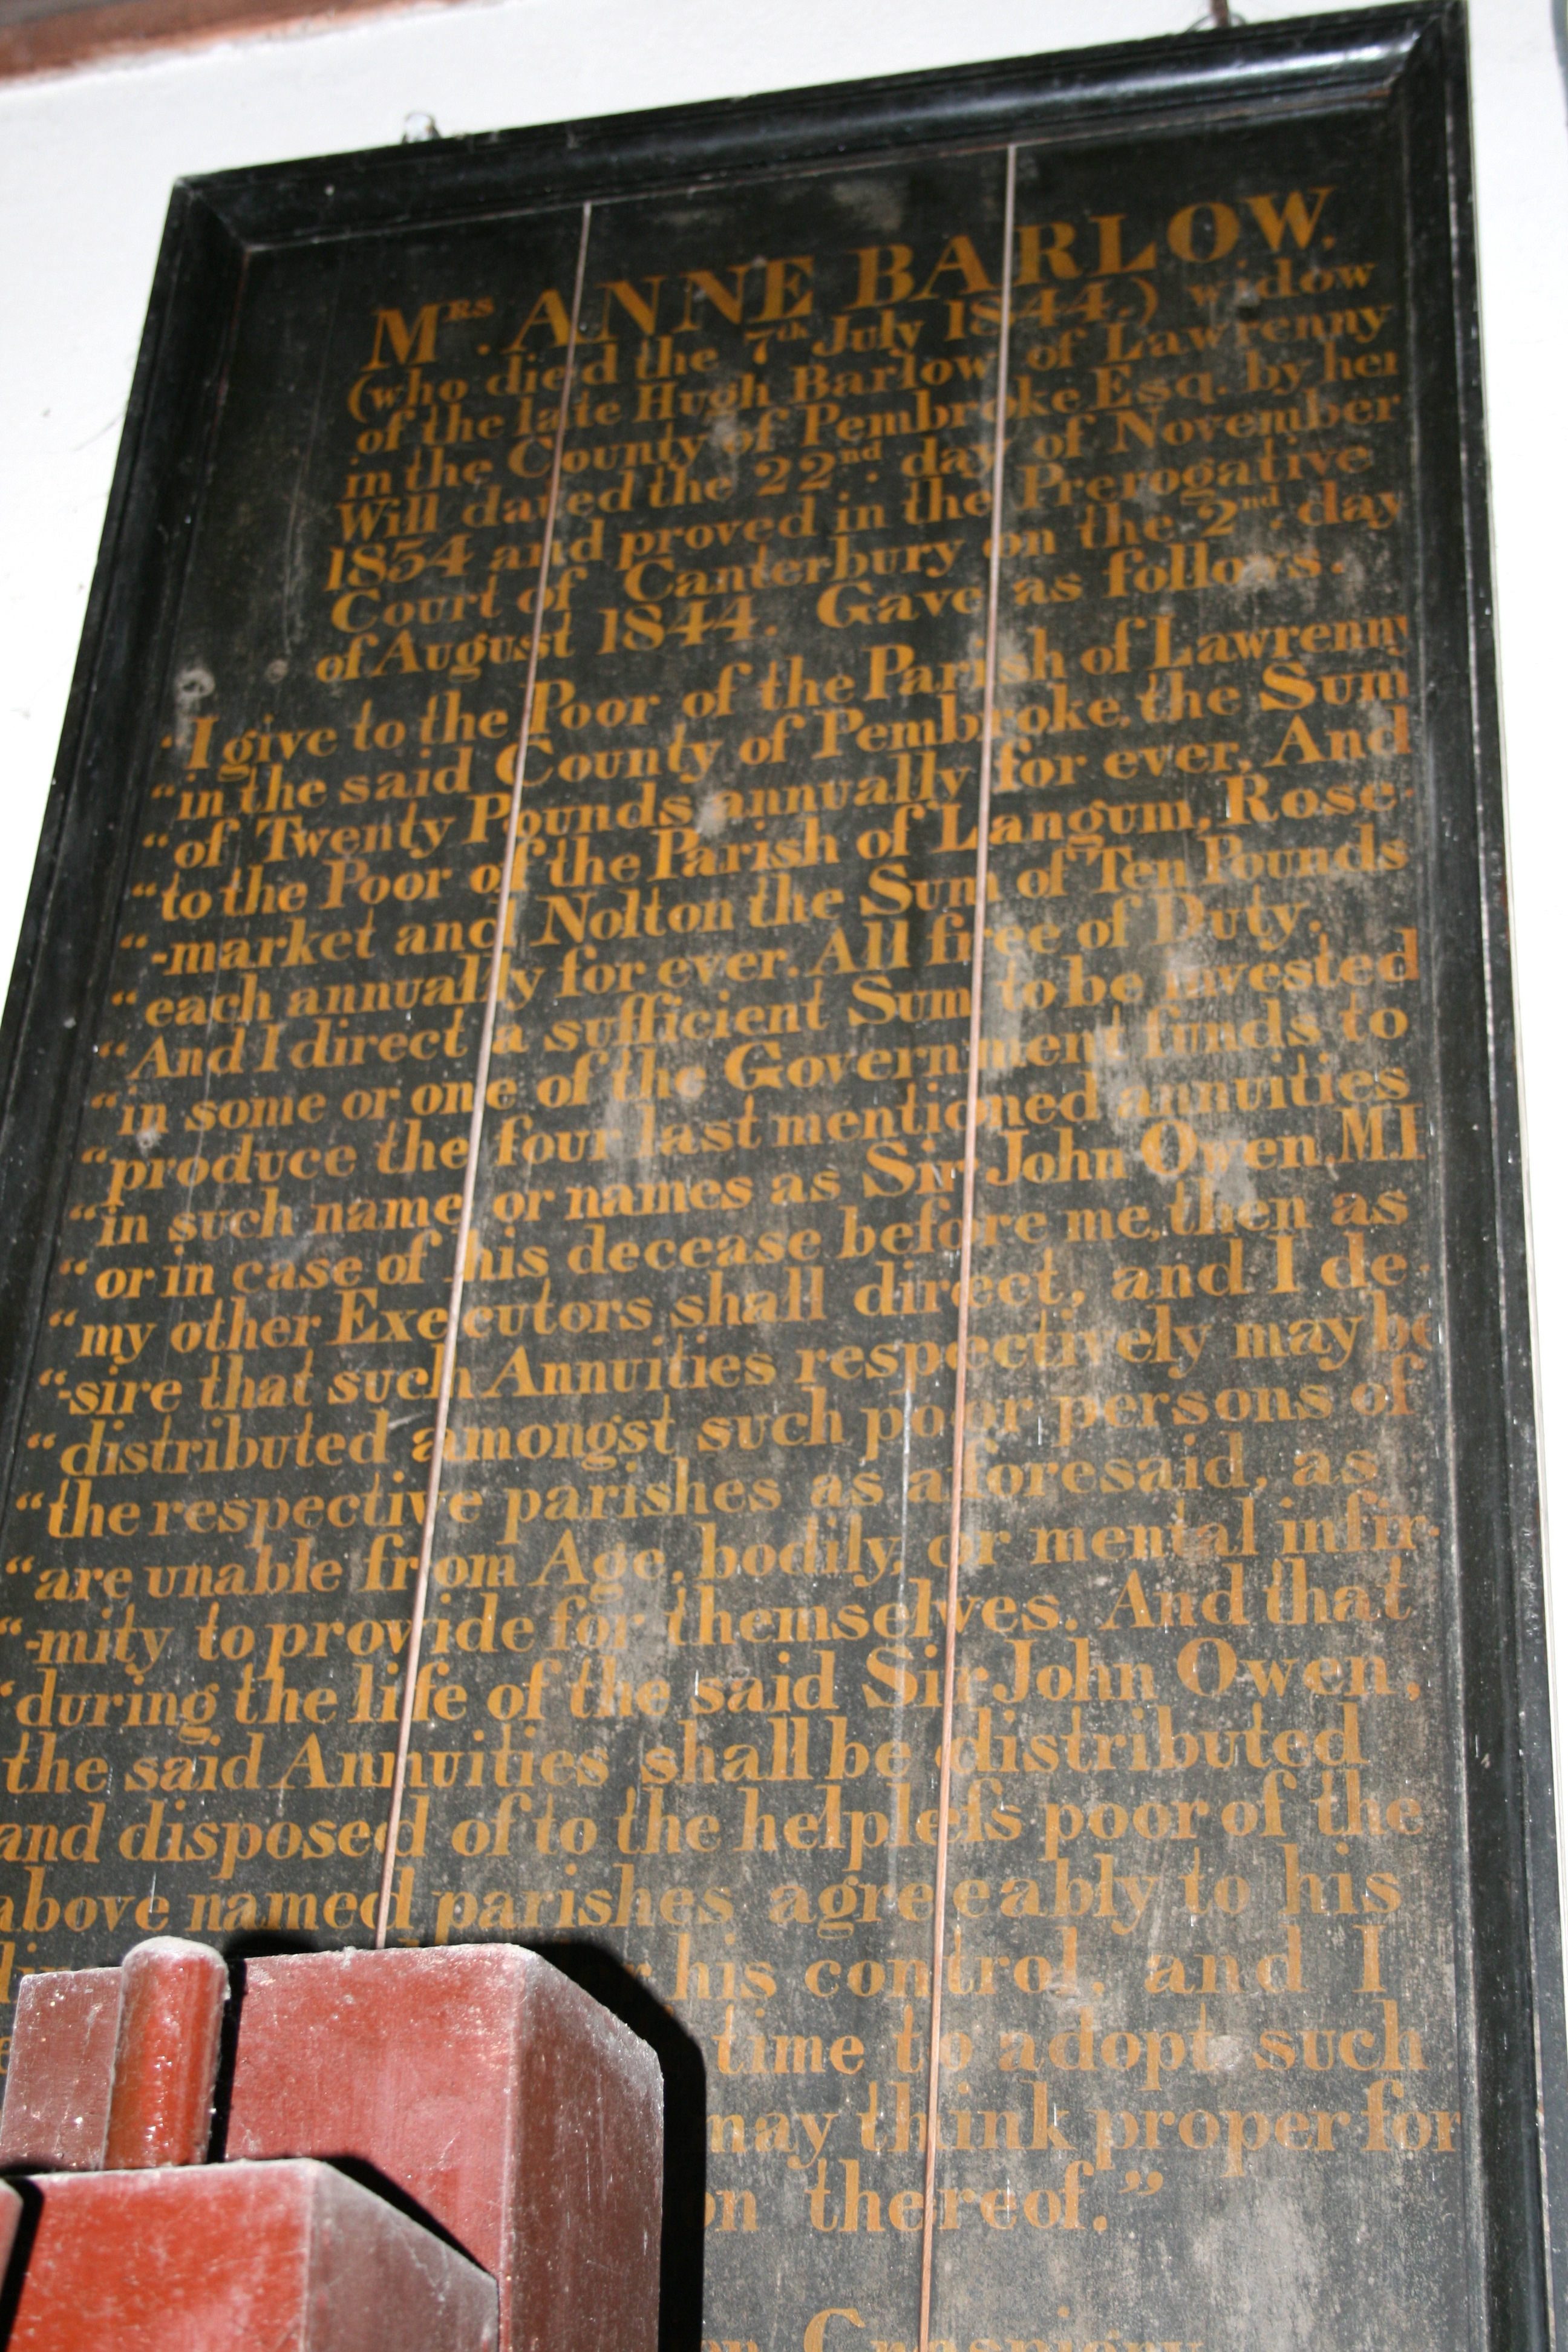 MRS. ANNE BARLOW,
(who died the 7th July 1844.) widow
of the late Hugh Barlow of Lawrenny
in the County of Pembroke Esq. by her
Will dated the 22nd. day of November
1834 and proved in the Prerogative
Court of Canterbury on the 2nd. day
of August 1844. Gave as follows.
"I give to the Poor of the Parish of Lawrenny
"in the said County of Pembroke, the Sum
"of Twenty Pounds annually for ever. And
"to the Poor of the Parish of Langum, Rose-
"-market and Nolton the Sum of Ten Pounds
"each annually for ever. All free of Duty.
"And I direct a sufficient Sum to be invested
"in some or one of the Government funds to
"produce the four last mentioned annuities
"in such name or names as Sir John Owen,
"or in case of his decease before me, then as
"my other Executors shall direct, and I de-
"-sire that such Annuities respectively may be
"distributed amongst such poor persons of
"the respective parishes as aforesaid, as
"are unable from Age, bodily, or mental infir-
"-mity to provide for themselves. And that
"during the life of the said Sir John Owen,
the said Annuities shall be distributed
and disposed of to the helpleſs poor of the
above named parishes agreeably to his
his control, and I
time to adopt such
may think proper for
thereof."